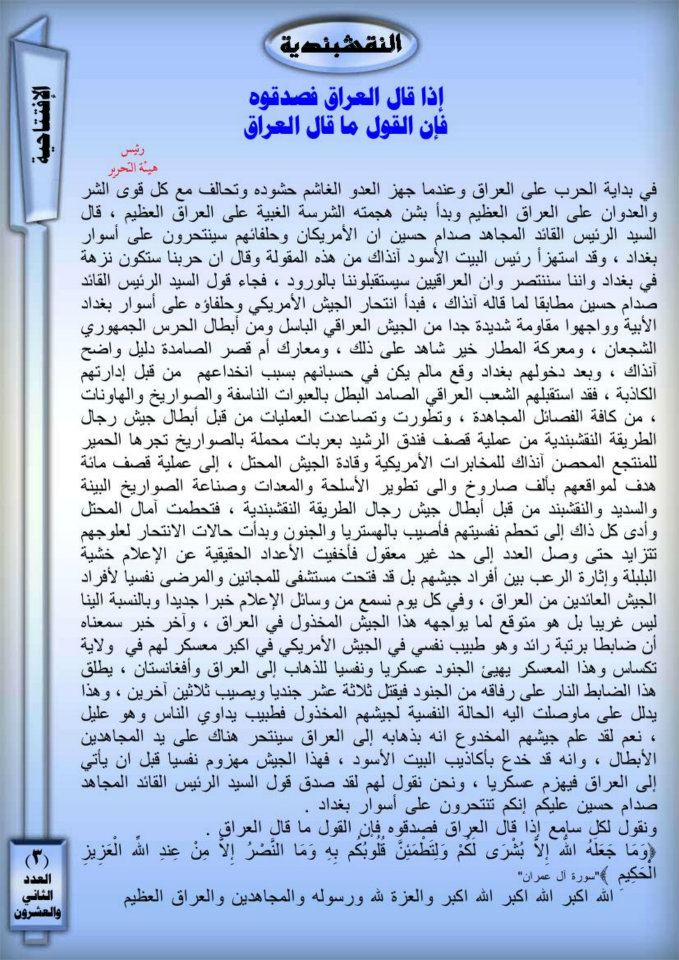 النقشبندية
الإفتتاحية
إذا قال العراق فصدقوه
فإن القول ما قال العراق
رئيس
هيئة التحرير
في بداية الحرب على العراق وعندما جهز العدو الغاشم حشوده وتحالف مع كل قوى الشر
والعدوان على العراق العظيم وبدأ بشن هجمته الشرسة الغبية على العراق العظيم ، قال
السيد الرئيس القائد المجاهد صدام حسين ان الأمريكان وحلفائهم سينتحرون على أسوار
بغداد ، وقد استهزأ رئيس البيت الأسود آنذاك من هذه المقولة وقال ان حربنا ستكون نزهة
في بغداد واننا سننتصر وان العراقيين سيستقبلوننا بالورود ، فجاء قول السيد الرئيس القائد
صدام حسين مطابقا لما قاله آنذاك ، فبدأ انتحار الجيش الأمريكي وحلفاؤه على أسوار بغداد
الأبية وواجهوا مقاومة شديدة جدا من الجيش العراقي الباسل ومن أبطال الحرس الجمهوري
الشجعان ، ومعركة المطار خير شاهد على ذلك ، ومعارك أم قصر الصامدة دليل واضح
آنذاك ، وبعد دخولهم بغداد وقع مالم يكن في حسبانهم بسبب انخداعهم من قبل إدارتهم
الكاذبة ، فقد استقبلهم الشعب العراقي الصامد البطل بالعبوات الناسفة والصواريخ والهاونات
، من كافة الفصائل المجاهدة ، وتطورت وتصاعدت العمليات من قبل أبطال جيش رجال
الطريقة النقشبندية من عملية قصف فندق الرشيد بعربات محملة بالصواريخ تجرها الحمير
للمنتجع المحصن آنذاك للمخابرات الأمريكية وقادة الجيش المحتل ، إلى عملية قصف مائة
هدف لمواقعهم بألف صاروخ والى تطوير الأسلحة والمعدات وصناعة الصواريخ البينة
والسديد والنقشبند من قبل أبطال جيش رجال الطريقة النقشبندية ، فتحطمت آمال المحتل
وأدى كل ذاك إلى تحطم نفسيتهم فأصيب بالهستريا والجنون وبدأت حالات الانتحار لعلوجهم
تتزايد حتى وصل العدد إلى حد غير معقول فأخفيت الأعداد الحقيقية عن الإعلام خشية
البلبلة وإثارة الرعب بين أفراد جيشهم بل قد فتحت مستشفى للمجانين والمرضى نفسيا لأفراد
الجيش العائدين من العراق ، وفي كل يوم نسمع من وسائل الإعلام خبرا جديدا وبالنسبة الينا
ليس غريبا بل هو متوقع لما يواجهه هذا الجيش المخذول في العراق ، وآخر خبر سمعناه
أن ضابطا برتبة رائد وهو طبيب نفسي في الجيش الأمريكي في اكبر معسكر لهم في ولاية
تكساس وهذا المعسكر يهيئ الجنود عسكريا ونفسيا للذهاب إلى العراق وأفغانستان ، يطلق
هذا الضابط النار على رفاقه من الجنود فيقتل ثلاثة عشر جنديا ويصيب ثلاثين آخرين ، وهذا
يدلل على ماوصلت اليه الحالة النفسية لجيشهم المخذول فطبيب يداوي الناس وهو عليل
، نعم لقد علم جيشهم المخدوع انه بذهابه إلى العراق سينتحر هناك على يد المجاهدين
الأبطال ، وانه قد خدع بأكاذيب البيت الأسود ، فهذا الجيش مهزوم نفسيا قبل ان يأتي
إلى العراق فيهزم عسكريا ، ونحن نقول لهم لقد صدق قول السيد الرئيس القائد المجاهد
صدام حسين عليكم إنكم تنتحرون على أسوار بغداد .
ونقول لكل سامع إذا قال العراق فصدقوه فإن القول ما قال العراق .
﴿وَمَا جَعَلَهُ اللّهُ إِلاَّ بُشْرَى لَكُمْ وَلِتَطْمَئِنَّ قُلُوبُكُم بِهِ وَمَا النَّصْرُ إِلاَّ مِنْ عِندِ اللّهِ الْعَزِيزِ
الْحَكِيمِ ﴾"سورة آل عمران"
الله اكبر الله اكبر الله اكبر والعزة لله ورسوله والمجاهدين والعراق العظيم
(٣)
العدد
الثاني
والعشرون